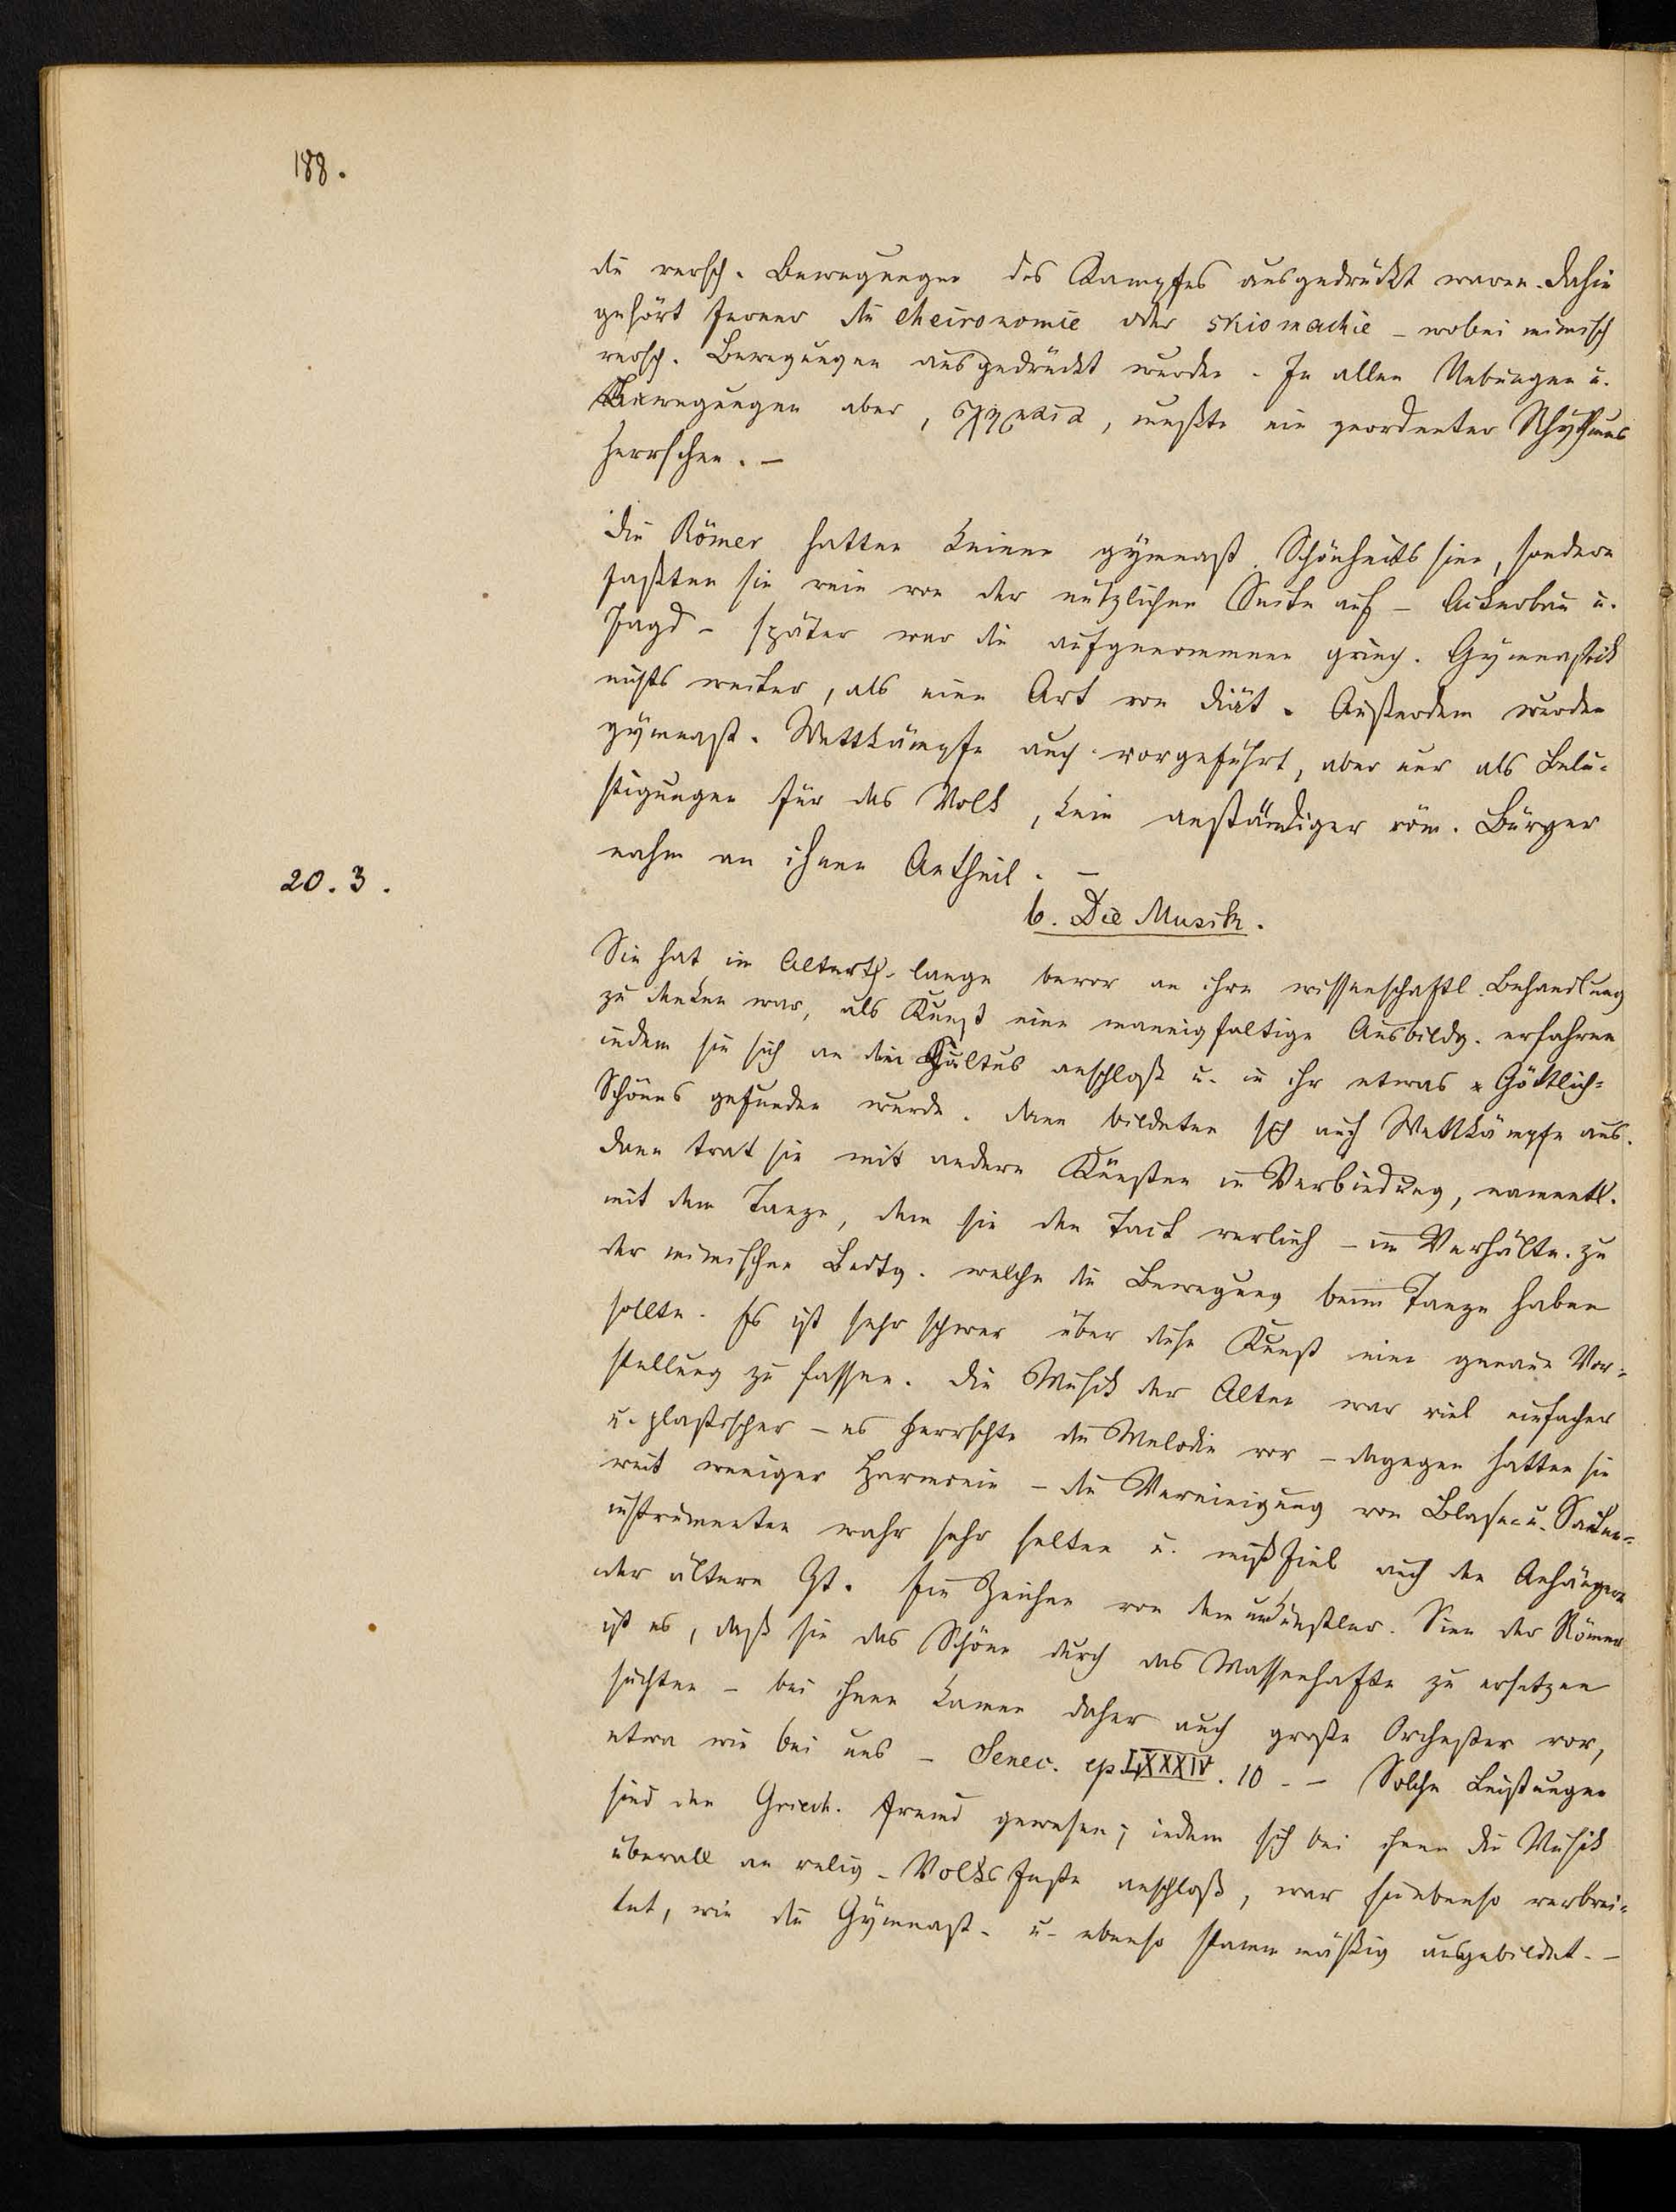 188.
die versch. Bewegungen des Kampfes ausgedrückt waren. Dahin
gehört ferner die cheironomie oder skiomachie – wobei mimisch
versch. Bewegungen ausgedrückt wurden. In allen Uebungen u.
Bewegungen aber, σχήματα, mußte ein geordneter Rhythmus
herrschen. –
Die Römer hatten keinen gymnast. Schönheitssinn, sondern
faßten sie rein von der nützlichen Seite auf – Ackerbau u.
Jagd – später war die aufgenommene griech. Gymnastik
nichts weiter, als eine Art von Diät. Außerdem wurden
gymnast. Wettkämpfe auch vorgeführt, aber nur als Belu-
stigungen für das Volk, kein anständiger röm. Bürger
nahm an ihnen Antheil. –
20. 3.
b. Die Musik.
Sie hat im Alterth. lange bevor an ihre wissenschaftl. Behandlung
zu denken war, als Kunst eine mannigfaltige Ausbildg. erfahren
indem sie sich an den Cultus anschloß u. in ihr etwas Göttlich-
Schönes gefunden wurde. Dann bildeten sich auch Wettkämpfe aus.
Dann trat sie mit andern Künsten in Verbindung, namentl.
mit dem Tanze, dem sie den Tact verlieh – im Verhältn. zu
der mimischen Bedtg. welche die Bewegung beim Tanze haben
sollte. Es ist sehr schwer über diese Kunst eine genaue Vor-
stellung zu fassen. Die Musik der Alten war viel einfacher
u. plastischer – es herrschte die Melodie vor – dagegen hatten sie
weit weniger Harmonie – die Vereinigung von Blase- u. Saiten-
instrumenten wahr sehr selten u. mißfiel auch den Anhängern
der ältern Zt. Ein Zeichen von dem unkünstler. Sinn der Römer
ist es, daß sie das Schöne durch das Massenhafte zu ersetzen
suchten – bei ihnen kamen daher auch große Orchester vor,
etwa wie bei uns – Senec. ep. LXXXIV. 10 – – Solche Leistungen
sind den Griech. fremd gewesen; indem sich bei ihnen die Musik
überall an relig. Volksfeste anschloß, war sie ebenso verbrei-
tet, wie die Gymnast. u. ebenso stammmäßig ausgebildet. –